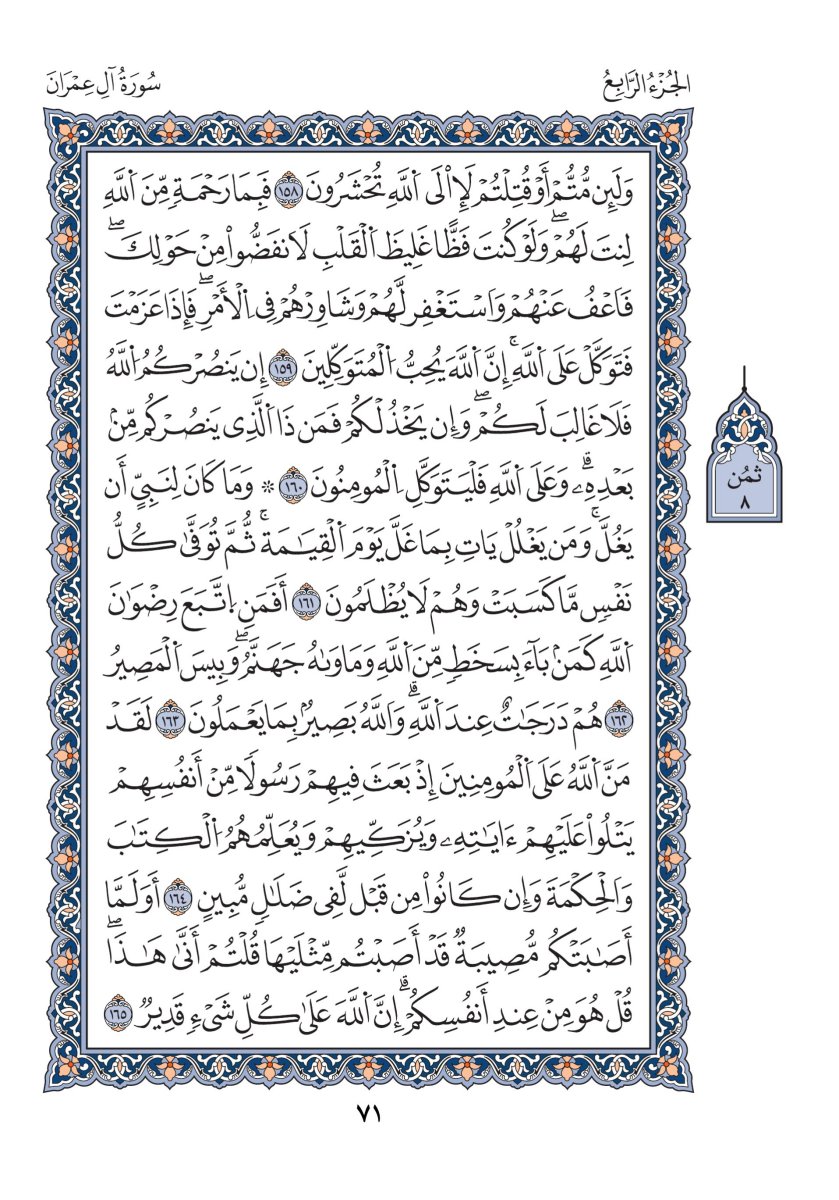 الجُزْءُ الرَّابِعُ
سُورَةُ آلِ عِمْرَانَ
وَلَئِن مُّتُّمُۥٓ أَوْ قُتِلْتُمْ لَإِاْلَى اَ۬للَّهِ تُحْشَرُونَ ١٥٨ فَبِمَا رَحْمَةٖ مِّنَ اَ۬للَّهِ
لِنتَ لَهُمْۖ وَلَوْ كُنتَ فَظّاً غَلِيظَ اَ۬لْقَلْبِ لَانفَضُّواْ مِنْ حَوْلِكَۖ
فَاعْفُ عَنْهُمْ وَاسْتَغْفِر لَّهُمْ وَشَاوِرْهُمْ فِي اِ۬لْأَمْرِۖ فَإِذَا عَزَمْتَ
فَتَوَكَّلْ عَلَى اَ۬للَّهِۚ إِنَّ اَ۬للَّهَ يُحِبُّ اُ۬لْمُتَوَكِّلِينَ ١٥٩ إِن يَنصُرْكُمُ اُ۬للَّهُ
فَلَا غَالِبَ لَكُمْۖ وَإِن يَخْذُلْكُمْ فَمَن ذَا اَ۬لَّذِي يَنصُرْكُم مِّنۢ
بَعْدِهِۦۗ وَعَلَى اَ۬للَّهِ فَلْيَتَوَكَّلِ اِ۬لْمُومِنُونَ ١٦٠ ۞ وَمَا كَانَ لِنَبِيٍّ أَن
يَغُلَّۚ وَمَن يَغْلُلْ يَاتِ بِمَا غَلَّ يَوْمَ اَ۬لْقِيَٰمَةِۚ ثُمَّ تُوَفَّىٰ كُلُّ
نَفْسٖ مَّا كَسَبَتْ وَهُمْ لَا يُظْلَمُونَ ١٦١ أَفَمَنِ اِ۪تَّبَعَ رِضْوَٰنَ
اَ۬للَّهِ كَمَنۢ بَآءَ بِسَخَطٖ مِّنَ اَ۬للَّهِ وَمَاوَىٰهُ جَهَنَّمُۖ وَبِيسَ اَ۬لْمَصِيرُ
١٦٢ هُمْ دَرَجَٰتٌ عِندَ اَ۬للَّهِۗ وَاللَّهُ بَصِيرُۢ بِمَا يَعْمَلُونَ ١٦٣ لَقَدْ
مَنَّ اَ۬للَّهُ عَلَى اَ۬لْمُومِنِينَ إِذْ بَعَثَ فِيهِمْ رَسُولاً مِّنْ أَنفُسِهِمْ
يَتْلُواْ عَلَيْهِمْ ءَايَٰتِهِۦ وَيُزَكِّيهِمْ وَيُعَلِّمُهُمُ اُ۬لْكِتَٰبَ
وَالْحِكْمَةَ وَإِن كَانُواْ مِن قَبْل لَّفِي ضَلَٰلٖ مُّبِينٍ ١٦٤ أَوَلَمَّا
أَصَٰبَتْكُم مُّصِيبَةٞ قَدْ أَصَبْتُم مِّثْلَيْهَا قُلْتُمْ أَنَّىٰ هَٰذَاۖ
قُلْ هُوَ مِنْ عِندِ أَنفُسِكُمْۗ إِنَّ اَ۬للَّهَ عَلَىٰ كُلِّ شَيْءٖ قَدِيرٞ ١٦٥
ثمُن
٨
٧١